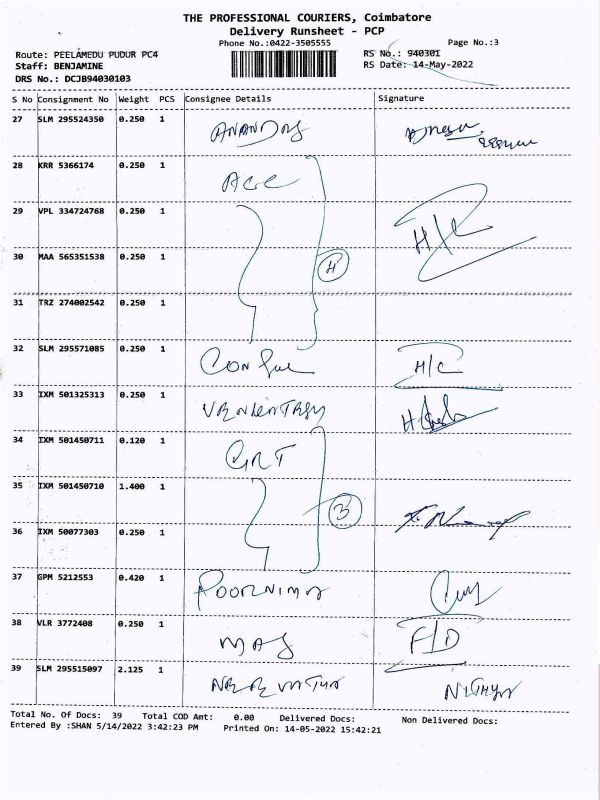 THE PROFESSIONAL COURIERS, Coimbatore
Delivery Runsheet - PCP
Phone No.:0422-3505555 Page No.:3
Route: PEELAMEDU PUDUR PC4 RS No.: 940301
Staff: BENJAMINE RS Date: 14-May-2022
DRS No.: DCJB94030103
S No Consignment No Weight PCS Consignee Details Signature
27 SLM 295524350 0.250 1
28 KRR 5366174 0.250 1
29 VPL 334724768 0.250 1 H/C
30 MAA 565351538 0.250 1 4
31 TRZ 274002542 0.250 1
32 SLM 295571085 0.250 1 H/C
33 IXM 501325313 0.250 1
34 IXM 501450711 0.120 1 GRT
35 IXM 501450710 1.400 1 3
36 IXM 50077303 0.250 1
37 GPM 5212553 0.420 1 POORNIMA
38 VLR 3772408 0.250 1 F/D
39 SLM 295515097 2.125 1 NITHYA
Total No. Of Docs: 39 Total COD Amt: 0.00 Delivered Docs: Non Delivered Docs:
Entered By :SHAN 5/14/2022 3:42:23 PM Printed On: 14-05-2022 15:42:21